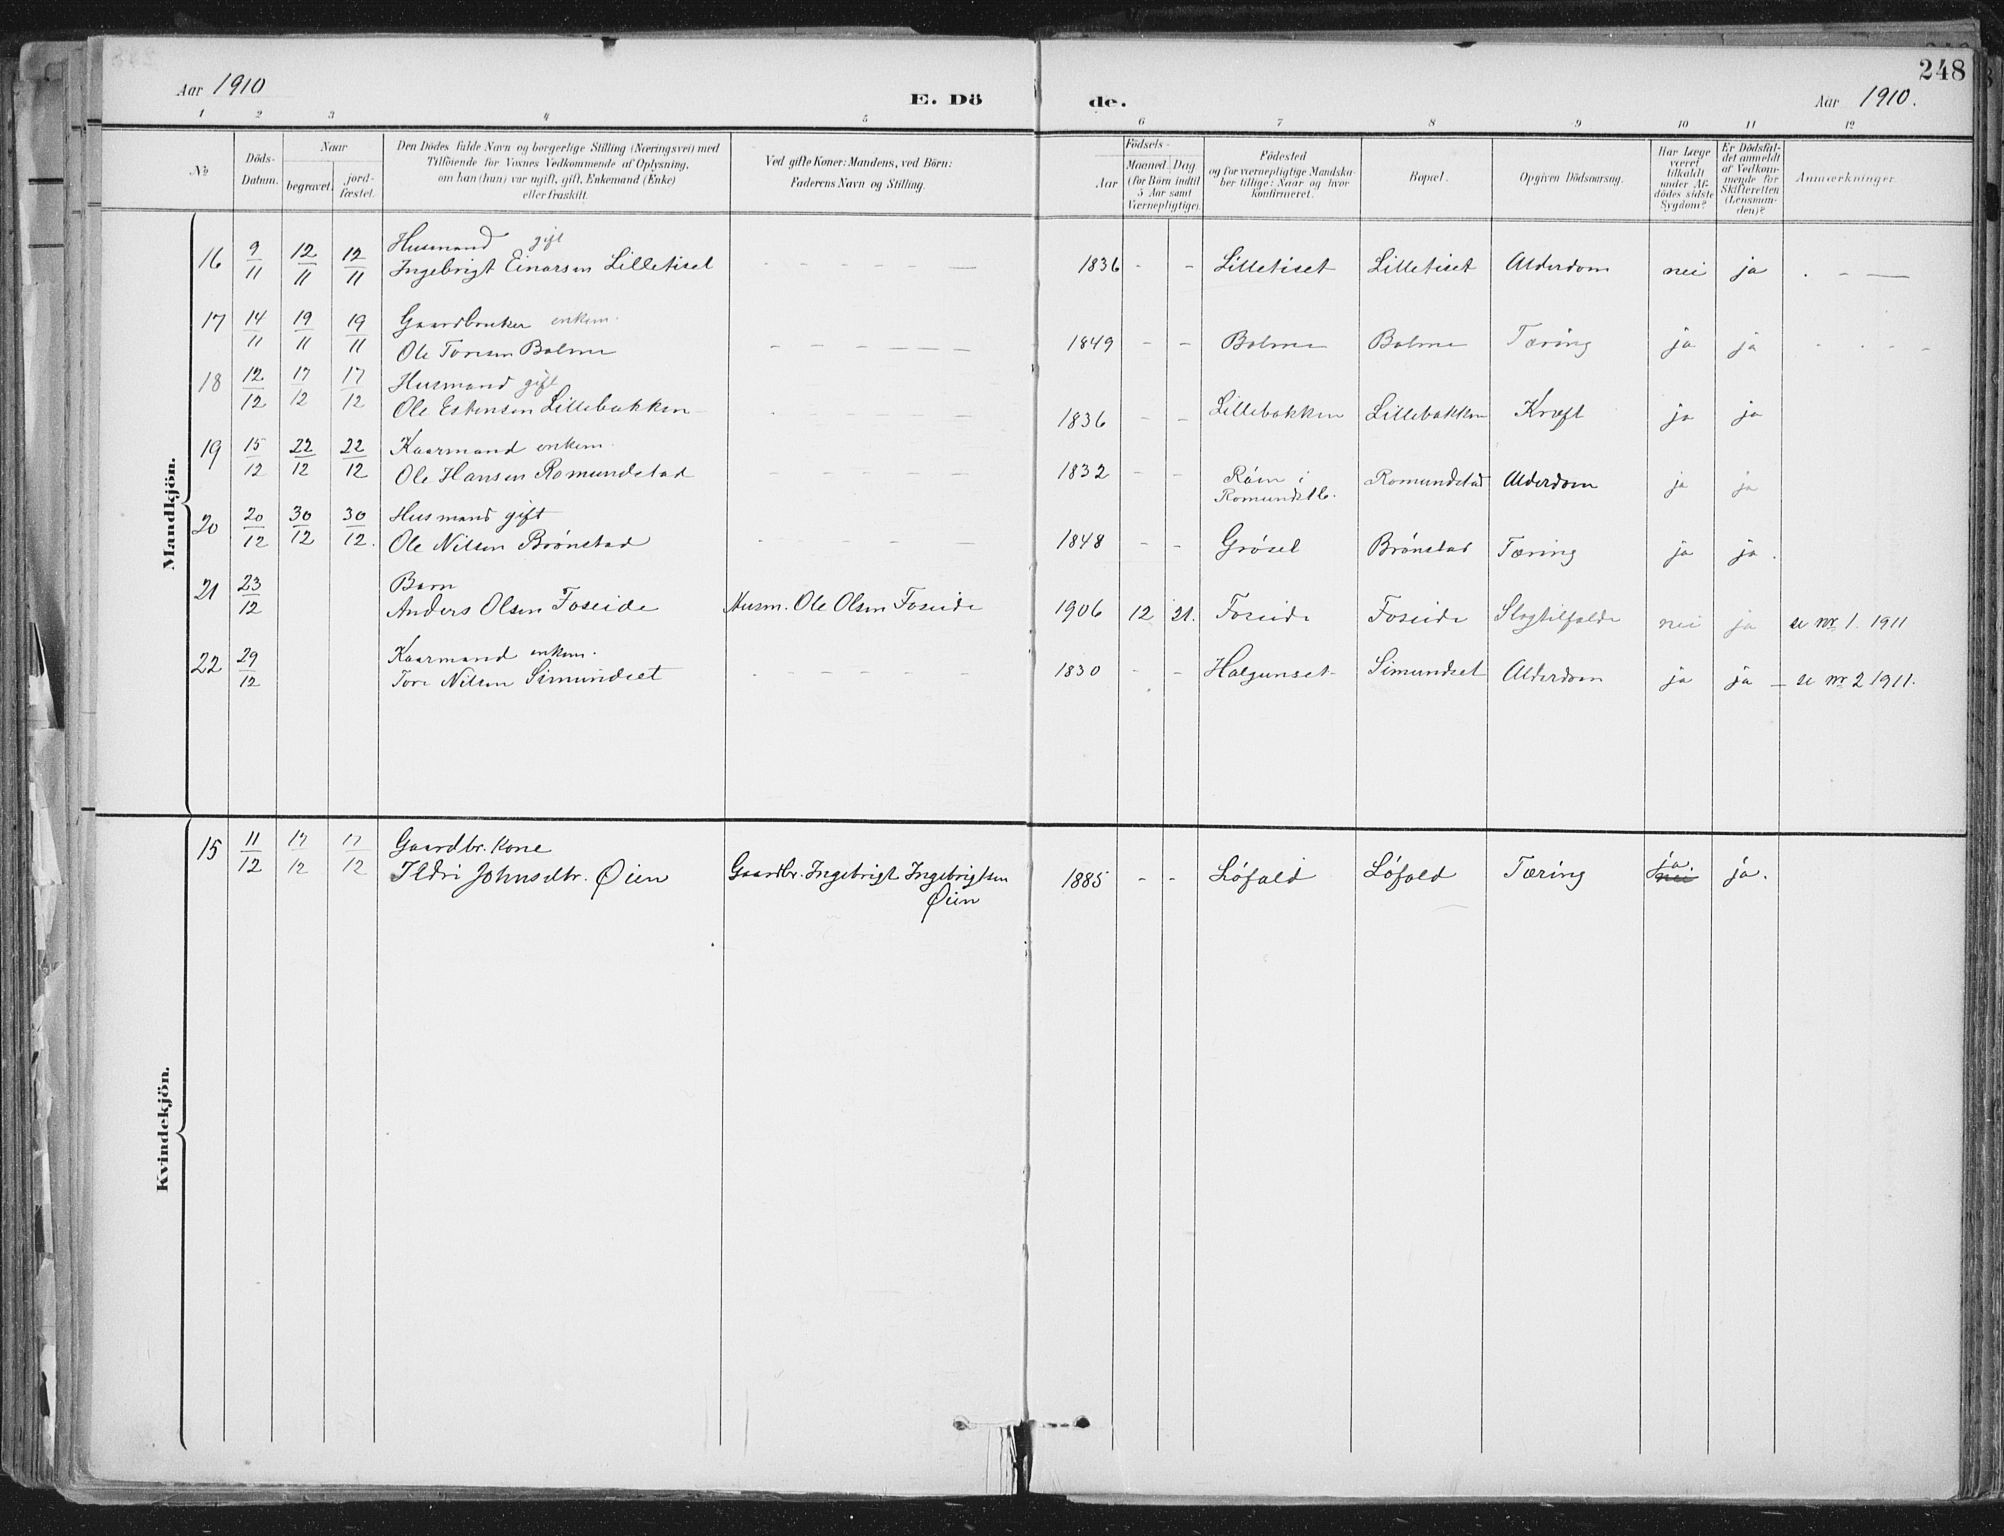 248
Aar 1910
E. Dö
de.
Aar 1910.
1 2 3 4 5 6 7 8 9 10 11 12
No
Döds-
Datum.
Naar
begravet.
jord-
fæstet.
Den Dödes fulde Navn og borgerlige Stilling (Næringsvei) med
Tilföiende for Voxnes Vedkommende af Oplysning,
om han (hun) var ugift, gift, Enkemand (Enke)
eller fraskilt.
Ved gifte Koner: Mandens, ved Börn:
Faderens Navn og Stilling.
Födsels-
Aar
Maaned
Dag
(for Börn indtil
5 Aar samt
Værnepligtige).
Födested
og for værnepligtige Mandska-
ber tillige: Naar og hvor
konfirmeret.
Bopæl.
Opgiven Dödsaarsag.
Har Læge
været
tilkaldt
under Af-
dödes sidste
Sygdom?
Er Dödsfal-
det anmeldt
af Vedkom-
mende for
Skifteretten
(Lensman-
den)?
Anmærkninger.
Mandkjön.
16 9/11 12/11 12/11 Husmand gift
Ingebrigt Einarsen Lilletiset - - - - - 1836 - - Lilletiset Lilletiset Alderdom nei ja . - -
17 14/11 19/11 19/11 Gaardbruker enkem.
Ole Toresen Bolme - - - - - 1849 - - Bolme Bolme Tæring ja ja - - - -
18 12/12 17/12 17/12 Husmand gift
Ole Estensen Lillebakken - - - - - 1836 - - Lillebakken Lillebakken Kræft ja ja
19 15/12 22/12 22/12 Kaarmand enkem.
Ole Hansen Romundstad - - - - - 1832 - - Røen i Romundstad Alderdom ja ja
Romundstb.
20 20/12 30/12 30/12. Husmand gift
Ole Nilsen Brønstad - - - - - 1848 - - Grøset Brønstad Tæring ja ja.
21 23/12 Barn
Anders Olsen Foseide Husm. Ole Olsen Foseide 1906 12 21. Foseide Foseide Slagtilfælde nei ja se nr 1. 1911
22 29/12 Kaarmand enkem.
Tore Nilsen Simundset - - - - - 1830 - - Halgunset Simundset Alderdom ja ja - se nr 2 1911.
Kvindekjön.
15 11/12 17/12 17/12 Gaardbr. kone
Ildri Johnsdtr. Øien Gaardbr. Ingebrigt Ingebrigtsen 1885 - - Løfald Løfald Tæring nei ja ja.
Øien